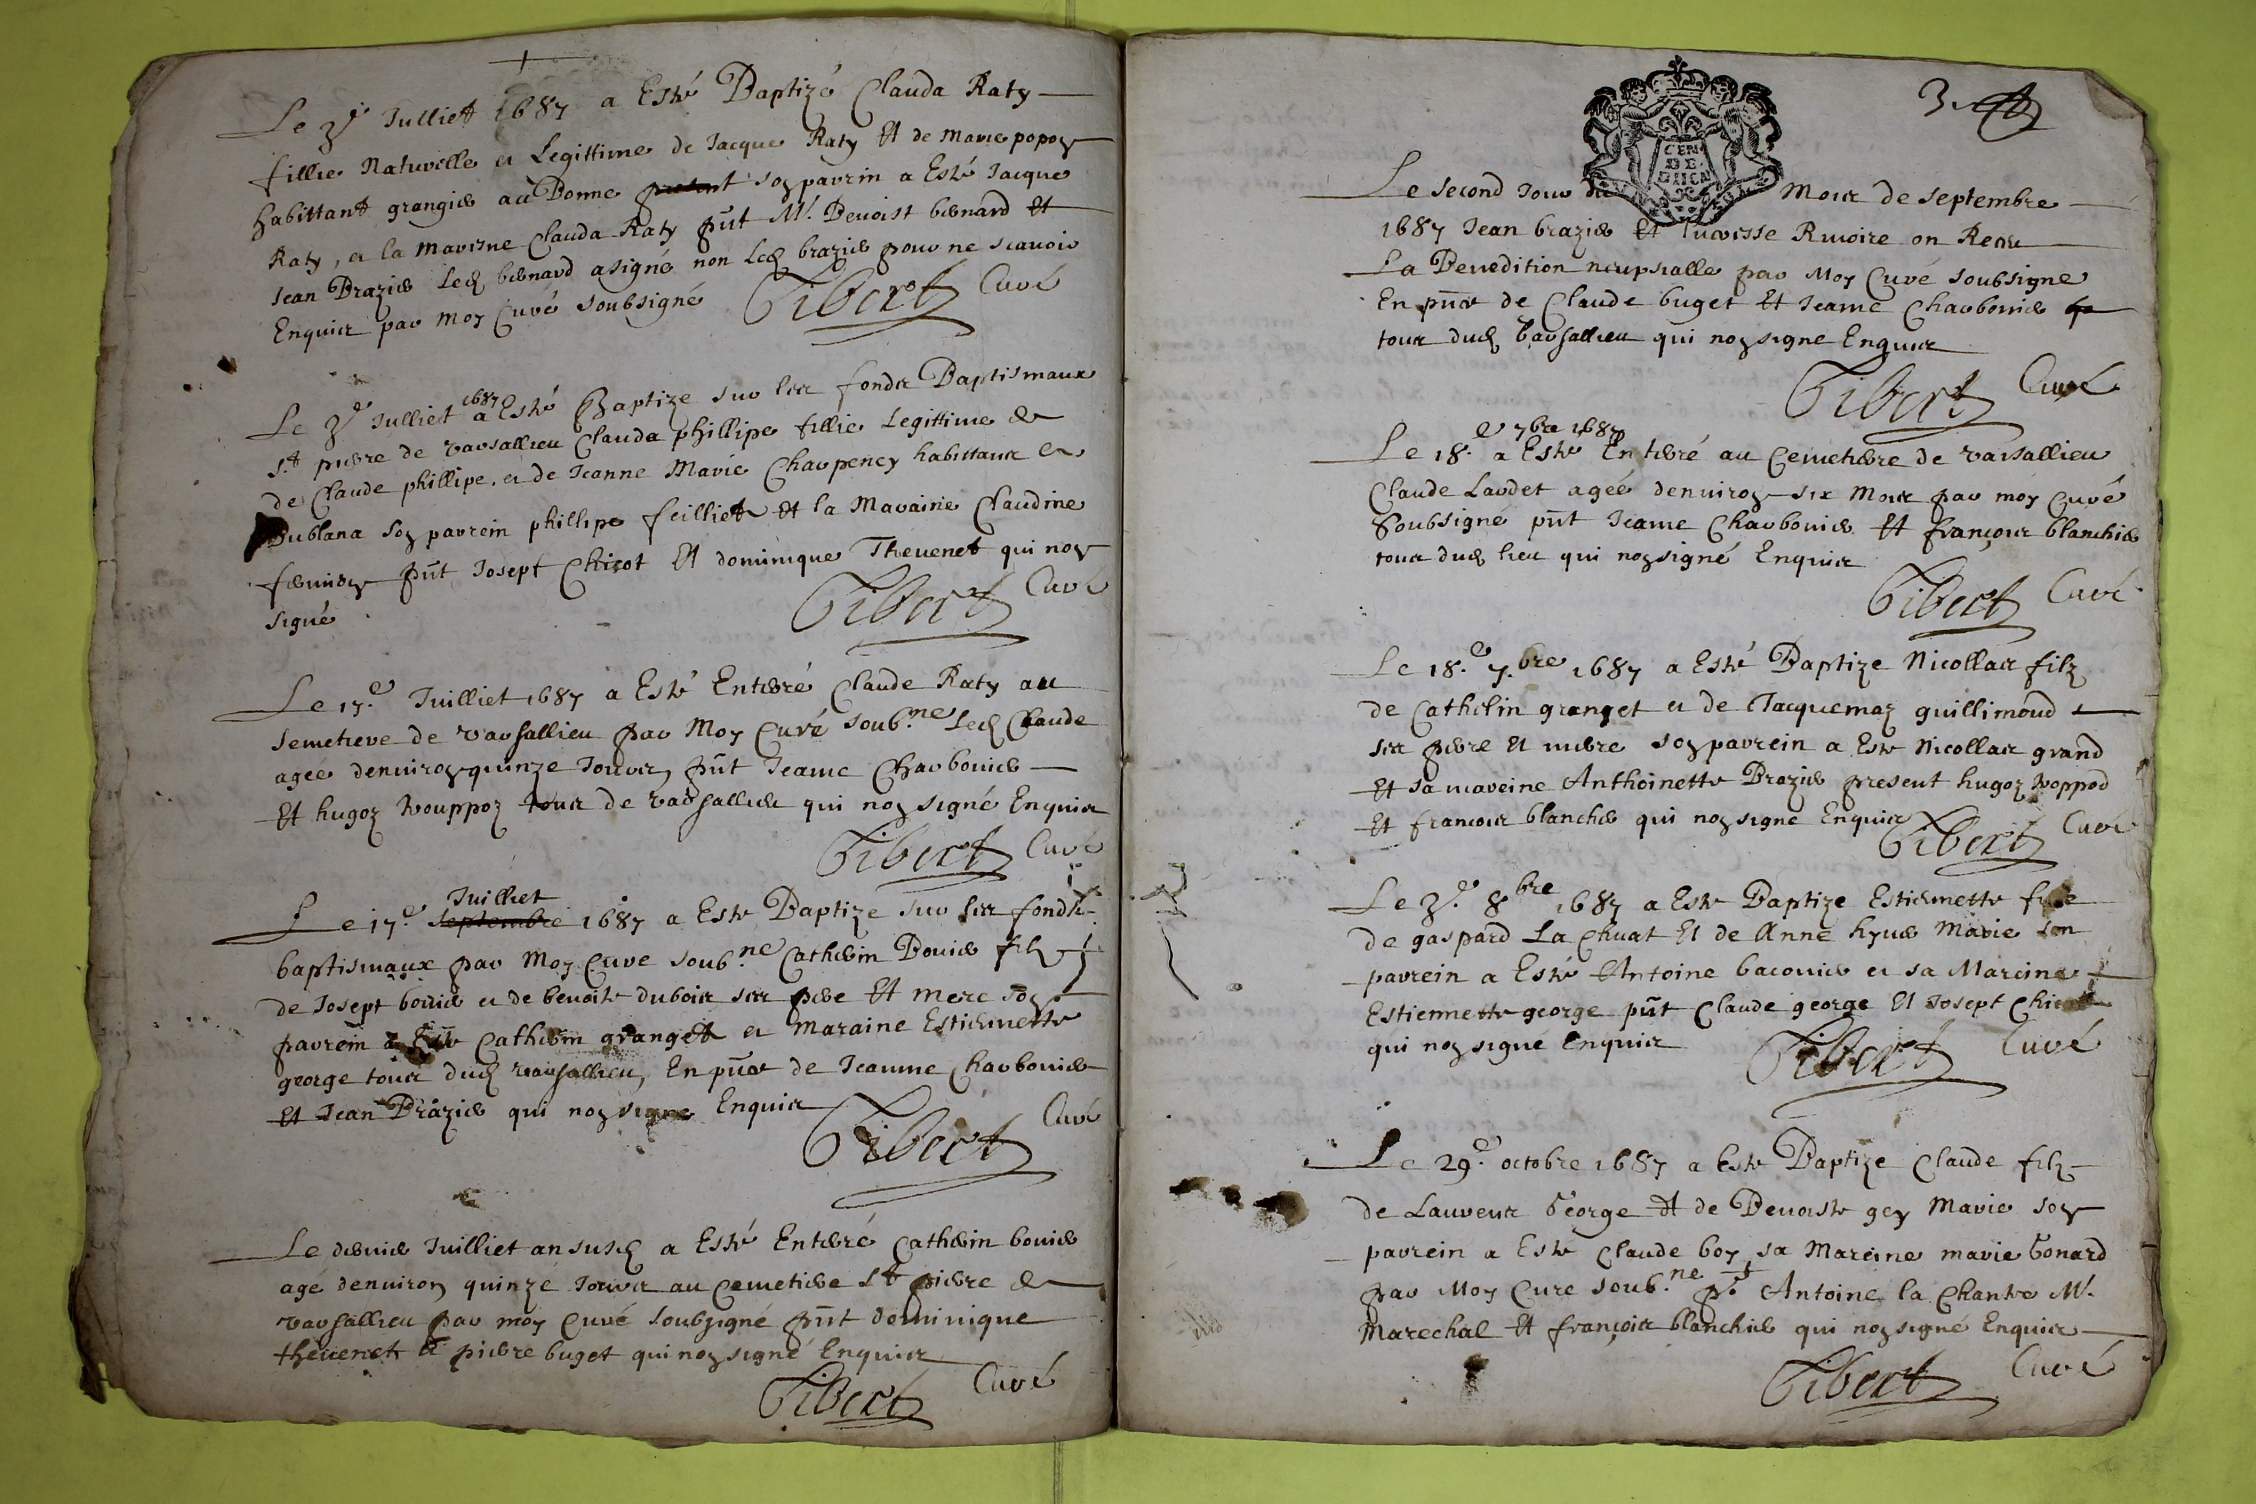 Le 3e Julliet 1687 a Esté Baptizé Clauda Raty
fillie Naturelle et Legittime de Jacque Raty Et de Marie popon
habittant grangier au Bonne son parrin a Esté Jacque
Raty, et la Marrine Clauda Raty pnt Mr. Benoist besnard Et
Jean Brazier Led besnard a signé non Led brazier pour ne scavoir
Enquis par moy Curé soubsigné Gibert Curé
Le 3e Julliet 1687 a Esté Baptize sur les fonds Baptismaux
st pierre de varsallieu Clauda phillipe fillie Legittime de
de Claude phillipe. et de Jeanne Marie Charpency habittans en
Dublana son parrein phillipe feilliet Et la Maraine Claudine
pnt Josept Chicot Et dominique Thevenet qui non
signé Gibert Curé
Le 17.e Juilliet 1687 a Esté Enterré Claude Raty au
semetiere de varsallieu par Moy Curé soub.ne Led Claude
agée denviron quinze Jours, pnt Jeame Charbonier
Et hugoz vouppoz tous de varsallieu qui non signé Enquis
Gibert Curé
Juilliet
Le 17.e septembre 1687 a Este Baptize sur les fonds
baptismaux par Moy Cure soub.ne Catherin Bovier filz
de Josept bovier et de benoite dubois ses pere Et mere son
parrein a Este Catherin granget et Maraine Estiennette
george tous dud varsallieu, En pnce de Jeanne Charbonier
Et Jean Brazier qui non signe Enquis
Gibert Curé
Le dernier Juilliet an susd a Esté Enterré Catherin bovier
agé denviron quinze Jours au Cemetiere st pierre de
varsallieu par moy Curé soubsigné pnt dominique
thevenet Et pierre buget qui non signé Enquis
Gibert Curé
3.
GEN
DE
DIICN
Le second Jour du Mois de septembre
1687 Jean brazier Et Rivoire on Receu
La Benedition neupsialle par Moy Curé soubsigne
En pnce de Claude buget Et Jeame Charbonier
tous dud varsallieu qui non signe Enquis
Gibert Curé
Le 18.e 7bre 1687 a Este Enterré au Cemetiere de varsallieu
Claude Laudet agée denviron six Mois par moy Curé
Soubsigné pnt Jeame Charbonier Et françois blanchier
tous dud lieu qui non signé Enquis
Gibert Curé
Le 18.e 7.bre 1687 a Esté Baptize Nicollas filz
de Cathelin granget et de Jacquemaz guillimond
ses pere Et mere son parrein a Este Nicollas grand
Et sa mareine Anthoinette Brazier present hugoz voppod
Et francois blanchier qui non signe Enquis
Gibert Curé
Le 3.e 8bre 1687 a Este Baptize Estiennette fille
de gaspard La Chuat Et de Anne hyver Marie son
parrein a Esté Antoine bacovier et sa Mareine
Estiennette george pnt Claude george Et Josept
qui non signé Enquis Gibert Curé
Le 29.e octobre 1687 a Este Baptize Claude filz
de Laurens George Et de Benoiste gey Marie son
parrein a Este Claude boy sa Mareine marie bonard
par Moy Cure soub.ne p.t Antoine la Chantre Mr.
Marechal Et françois blanchier qui non signé Enquis
Gibert Curé